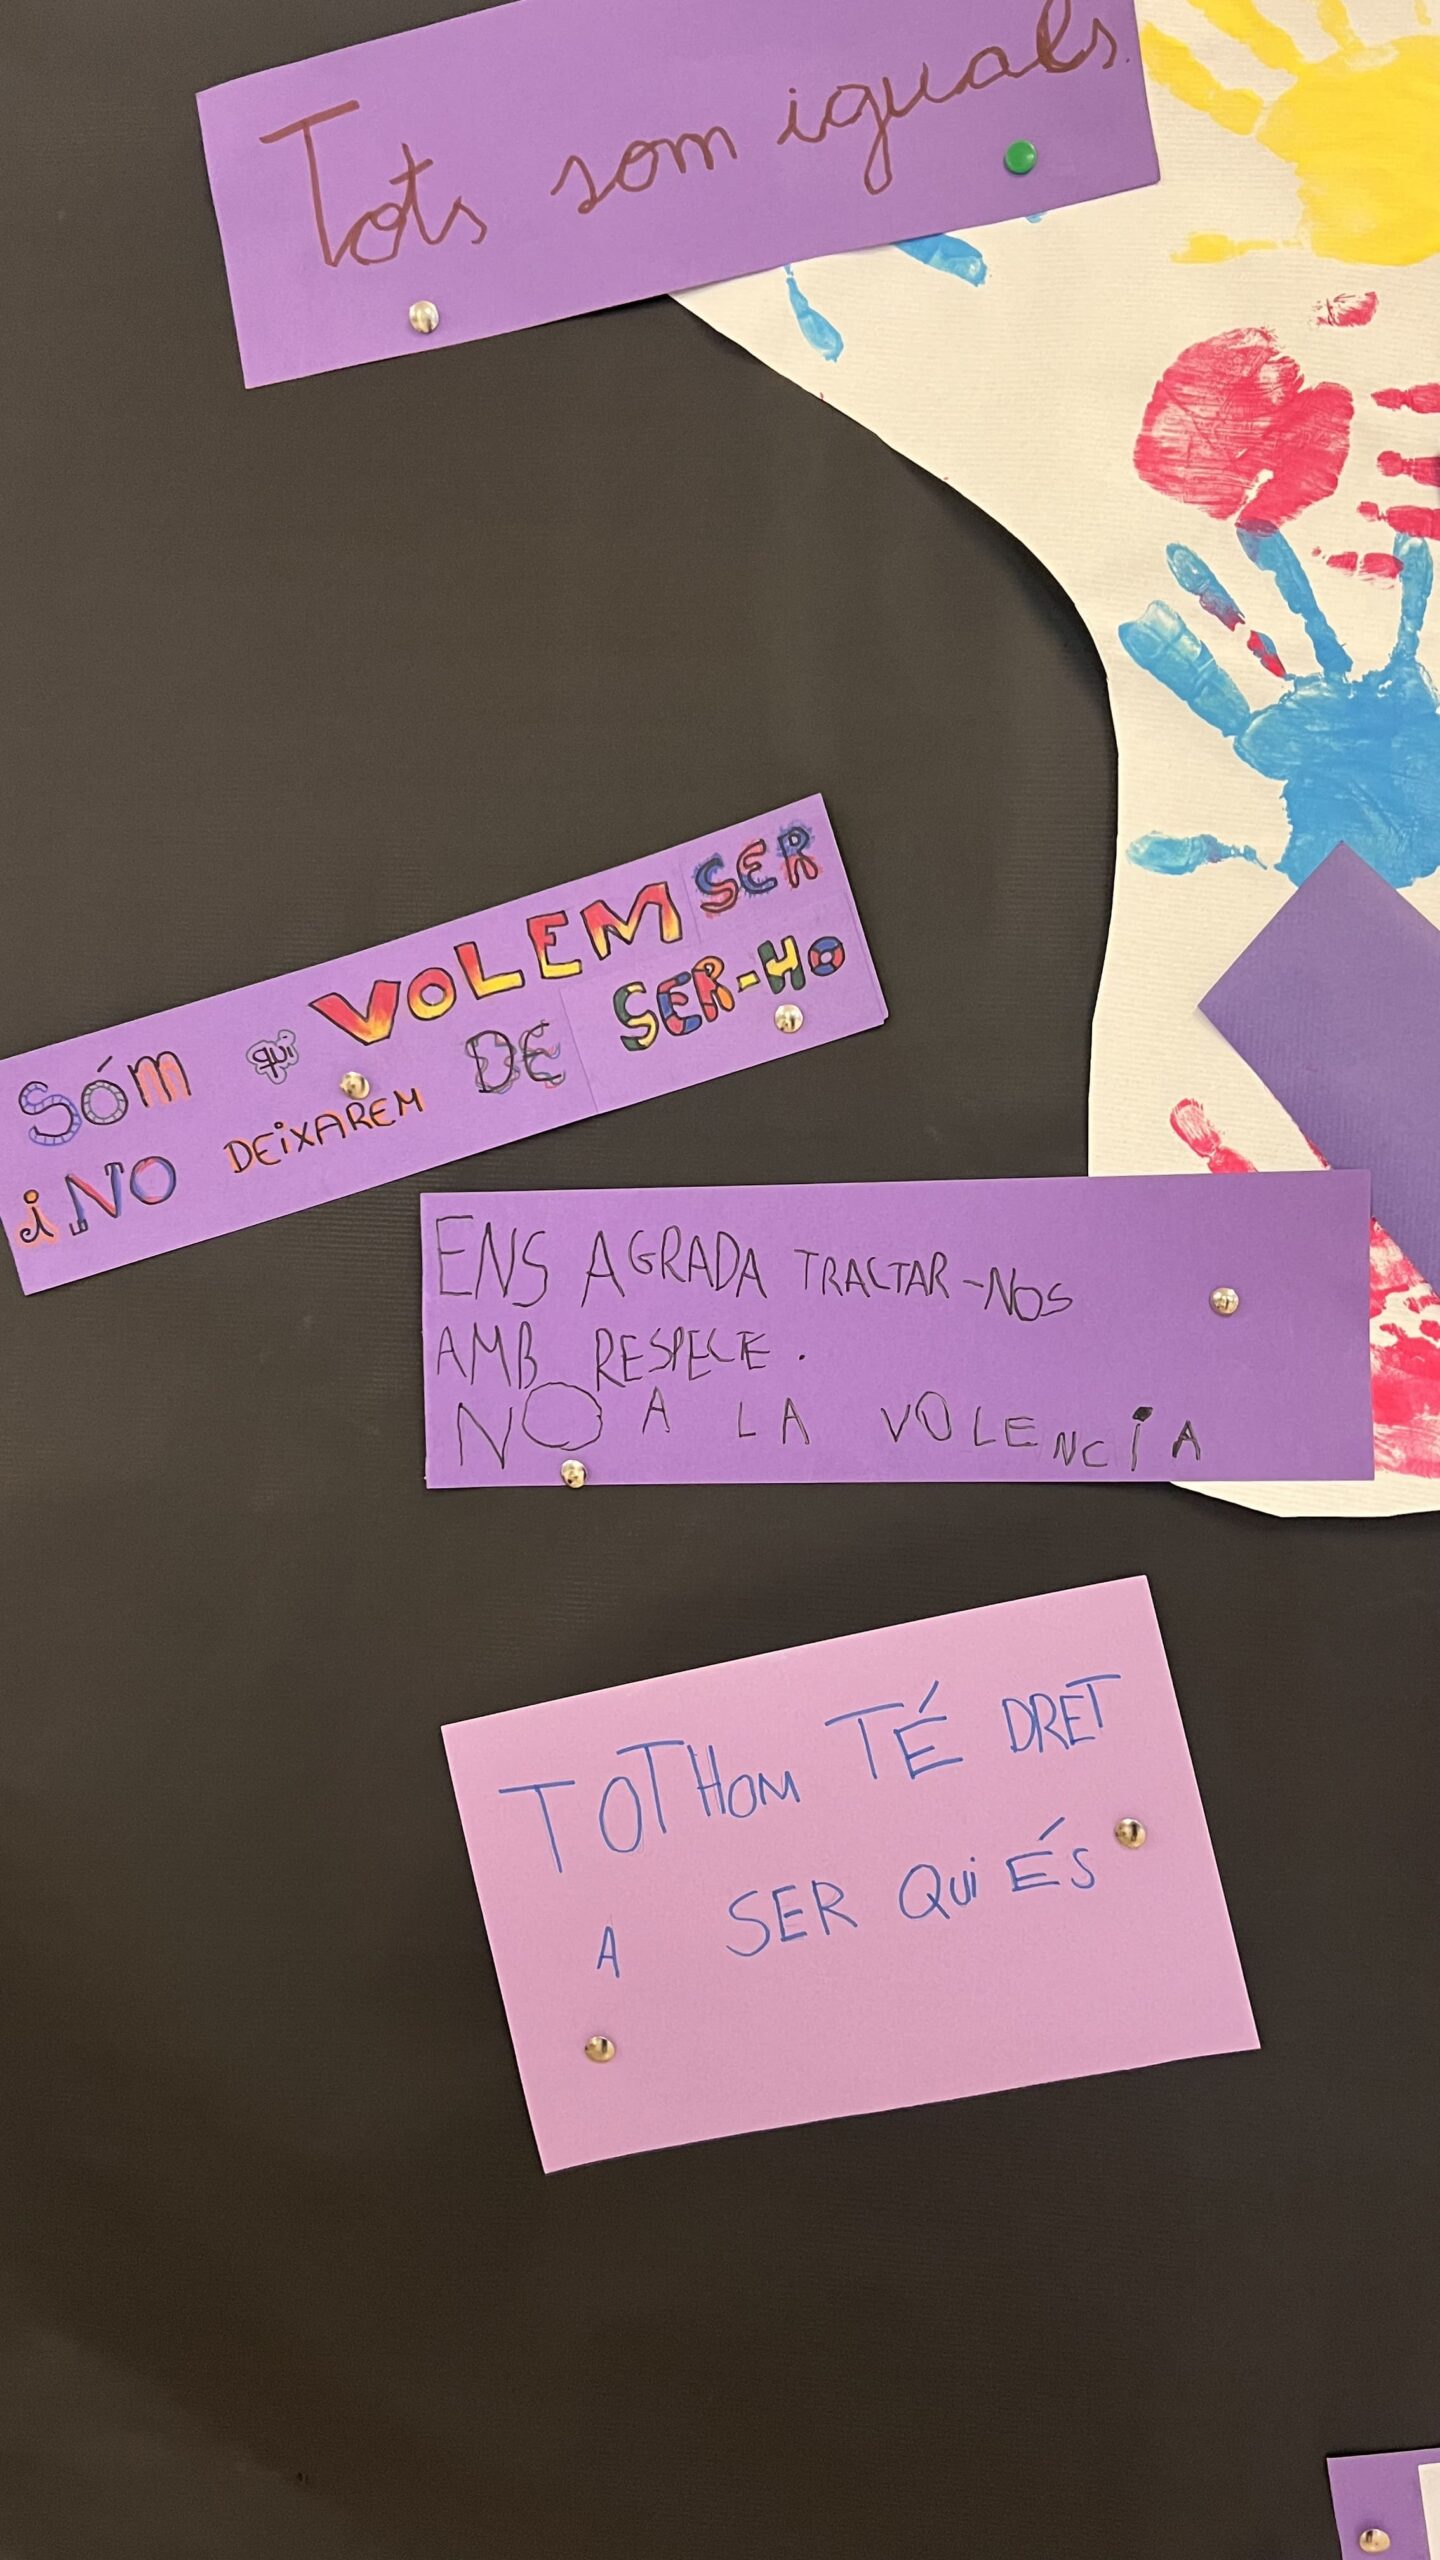 Tots som iguals.
SÓM qui VOLEM SER
i NO DEIXAREM DE SER-HO
ENS AGRADA TRACTAR-NOS
AMB RESPECTE.
NO A LA VOLENCIA
TOTHOM TÉ DRET
A SER QUI ÉS